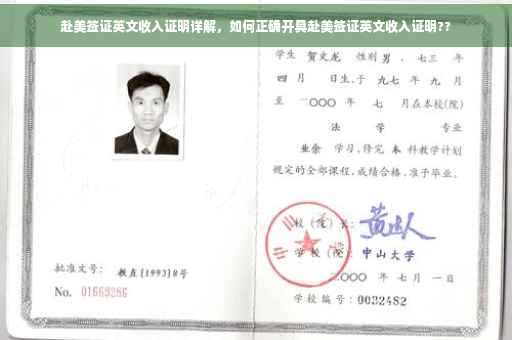 赴美签证英文收入证明详解，如何正确开具赴美签证英文收入证明??
学生 贺文龙 性别 男 ，七三 年
四 月 日生，于 九七 年 九 月
至 二〇〇〇 年 七 月在本校(院)
法 学 专业
业余 学习，修完 本 科教学计划
规定的全部课程，成绩合格，准予毕业。
校（院）长：
学校（院）：中山大学
二〇〇〇 年 七 月 一 日
学校编号：0032482
批准文号：教直[1993]8号
No. 01669286